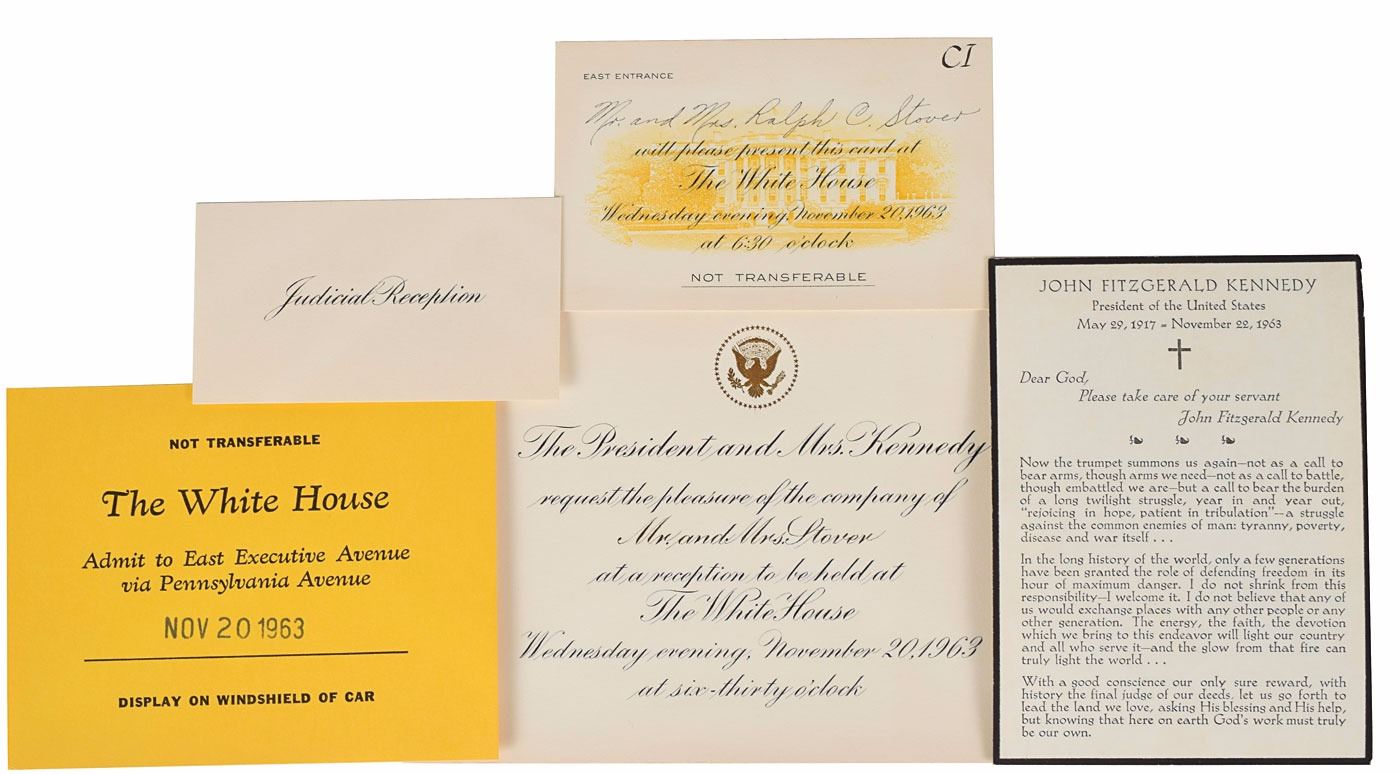 CI
EAST ENTRANCE
Mr. and Mrs. Ralph C. Stover
will please present this card at
The White House
Wednesday evening, November 20, 1963
at 6:30 o'clock
NOT TRANSFERABLE
Judicial Reception
NOT TRANSFERABLE
The White House
Admit to East Executive Avenue
via Pennsylvania Avenue
NOV 20 1963
DISPLAY ON WINDSHIELD OF CAR
The President and Mrs. Kennedy
request the pleasure of the company of
Mr. and Mrs. Stover
at a reception to be held at
The White House
Wednesday evening, November 20, 1963
at six-thirty o'clock
JOHN FITZGERALD KENNEDY
President of the United States
May 29, 1917 - November 22, 1963
Dear God,
Please take care of your servant
John Fitzgerald Kennedy
Now the trumpet summons us again—not as a call to
bear arms, though arms we need—not as a call to battle,
though embattled we are—but a call to bear the burden
of a long twilight struggle, year in and year out,
"rejoicing in hope, patient in tribulation"—a struggle
against the common enemies of man: tyranny, poverty,
disease and war itself . . .
In the long history of the world, only a few generations
have been granted the role of defending freedom in its
hour of maximum danger. I do not shrink from this
responsibility—I welcome it. I do not believe that any of
us would exchange places with any other people or any
other generation. The energy, the faith, the devotion
which we bring to this endeavor will light our country
and all who serve it—and the glow from that fire can
truly light the world . . .
With a good conscience our only sure reward, with
history the final judge of our deeds, let us go forth to
lead the land we love, asking His blessing and His help,
but knowing that here on earth God's work must truly
be our own.